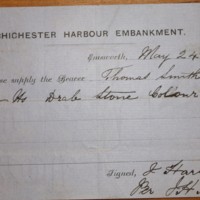 CHICHESTER HARBOUR EMBANKMENT.
Emsworth, May 24
se supply the Bearer Thomas Smith
Ho Drab Stone Colour
Signed, J Har
Per JH